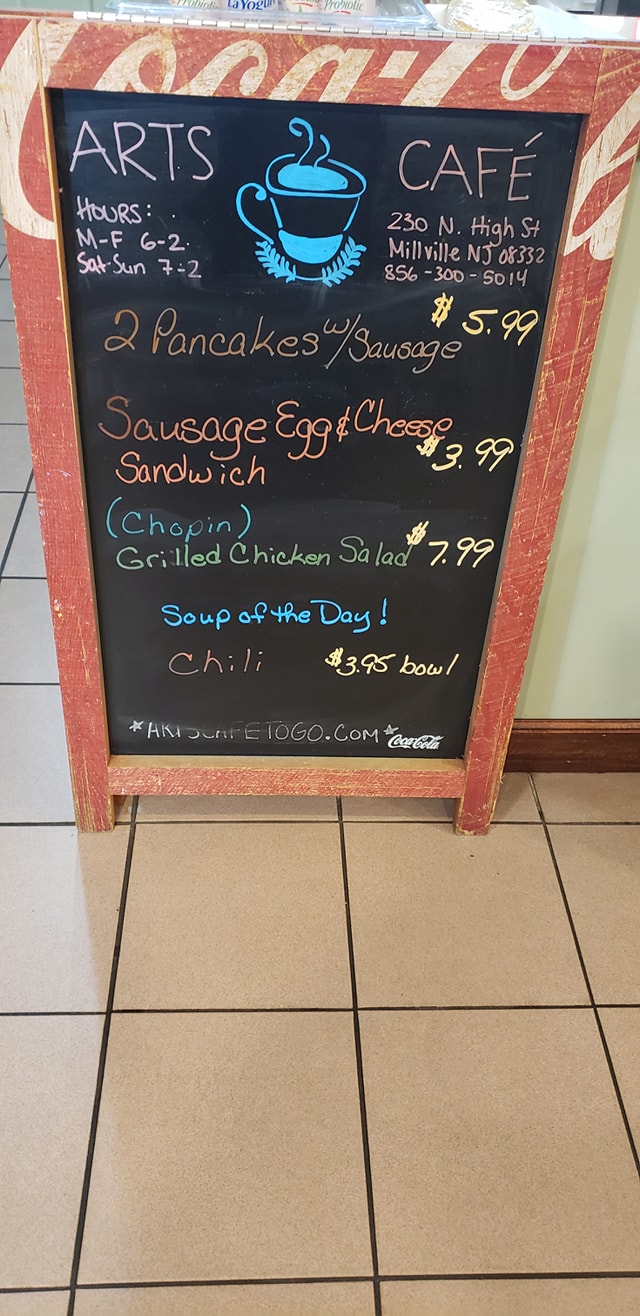 Probiotic LaYogurt Probiotic
Coca-Cola
ARTS CAFÉ
HOURS:
M-F 6-2
Sat-Sun 7-2
230 N. High St
Millville NJ 08332
856-300-5014
2 Pancakes w/Sausage $5.99
Sausage Egg & Cheese
Sandwich $3.99
(Chopin)
Grilled Chicken Salad $7.99
Soup of the Day!
Chili $3.95 bowl
*ARTSCAFETOGO.COM*
Coca-Cola